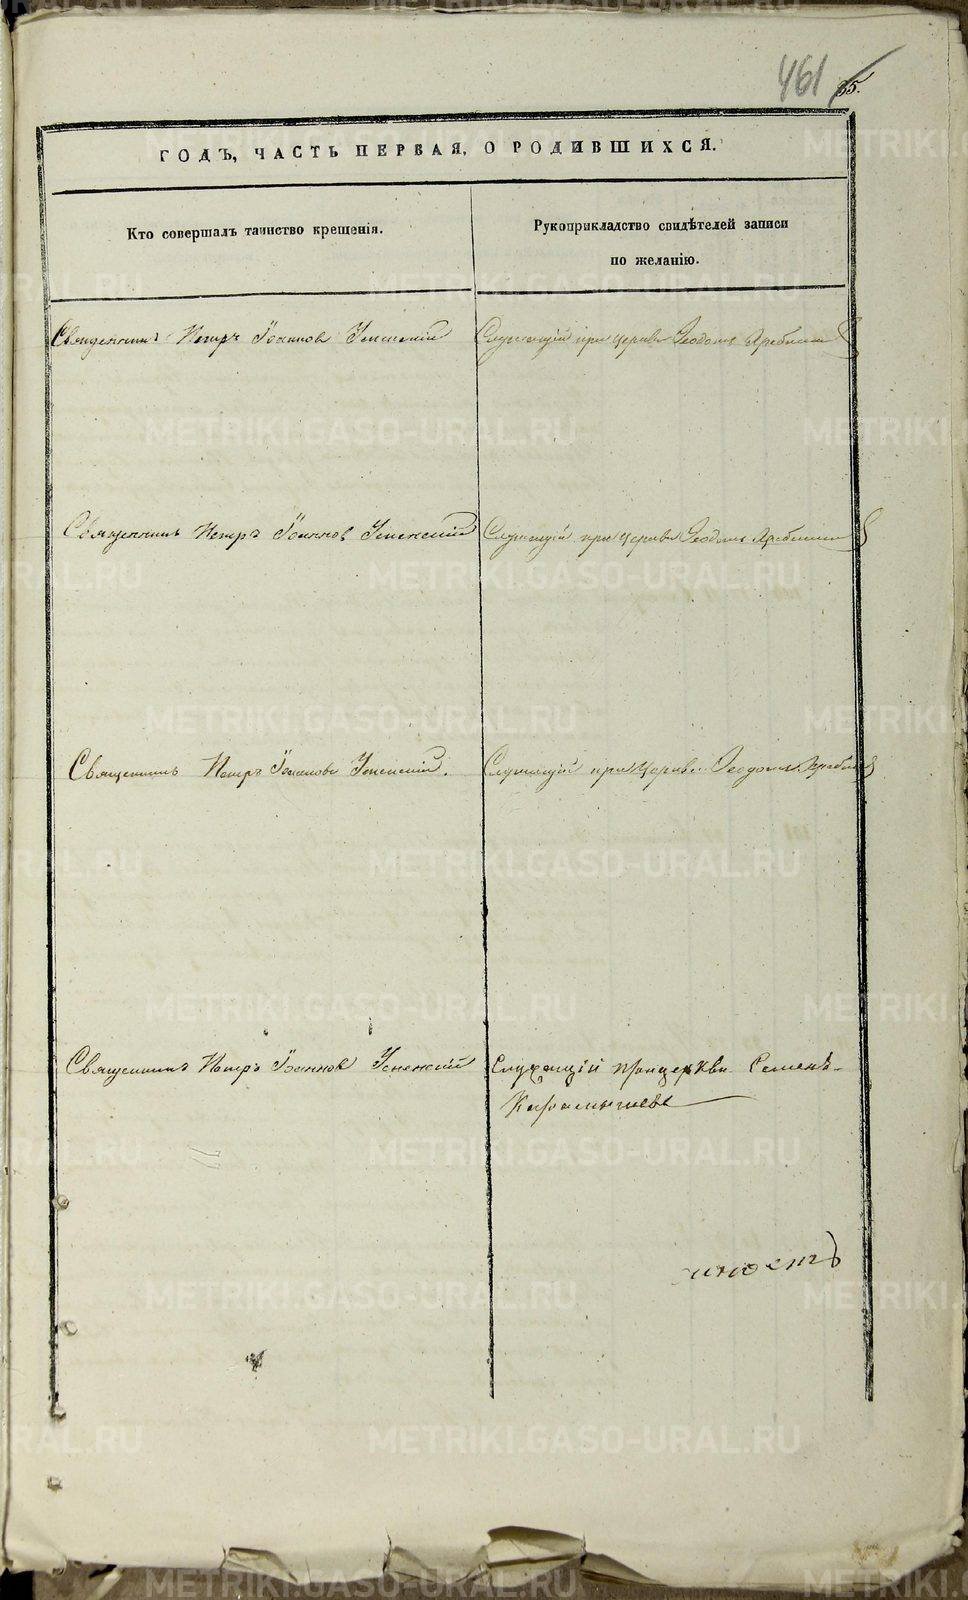 461 35.
ГОДЪ, ЧАСТЬ ПЕРВАЯ, О РОДИВШИХСЯ.
Кто совершалъ таинство крещенія.
Рукоприкладство свидѣтелей записи
по желанію.
Священникъ Петръ Іоанновъ Успенскій
Служащій при церкви Ѳеодотъ
Священникъ Петръ Іоанновъ Успенскій
Служащій при Церкви Ѳеодотъ
Священникъ Петръ Іоанновъ Успенскій.
Служащій при Церкви Ѳеодотъ
Священникъ Петръ Іоанновъ Успенскій
Служащій при церкви Семенъ
METRIKI.GASO-URAL.RU